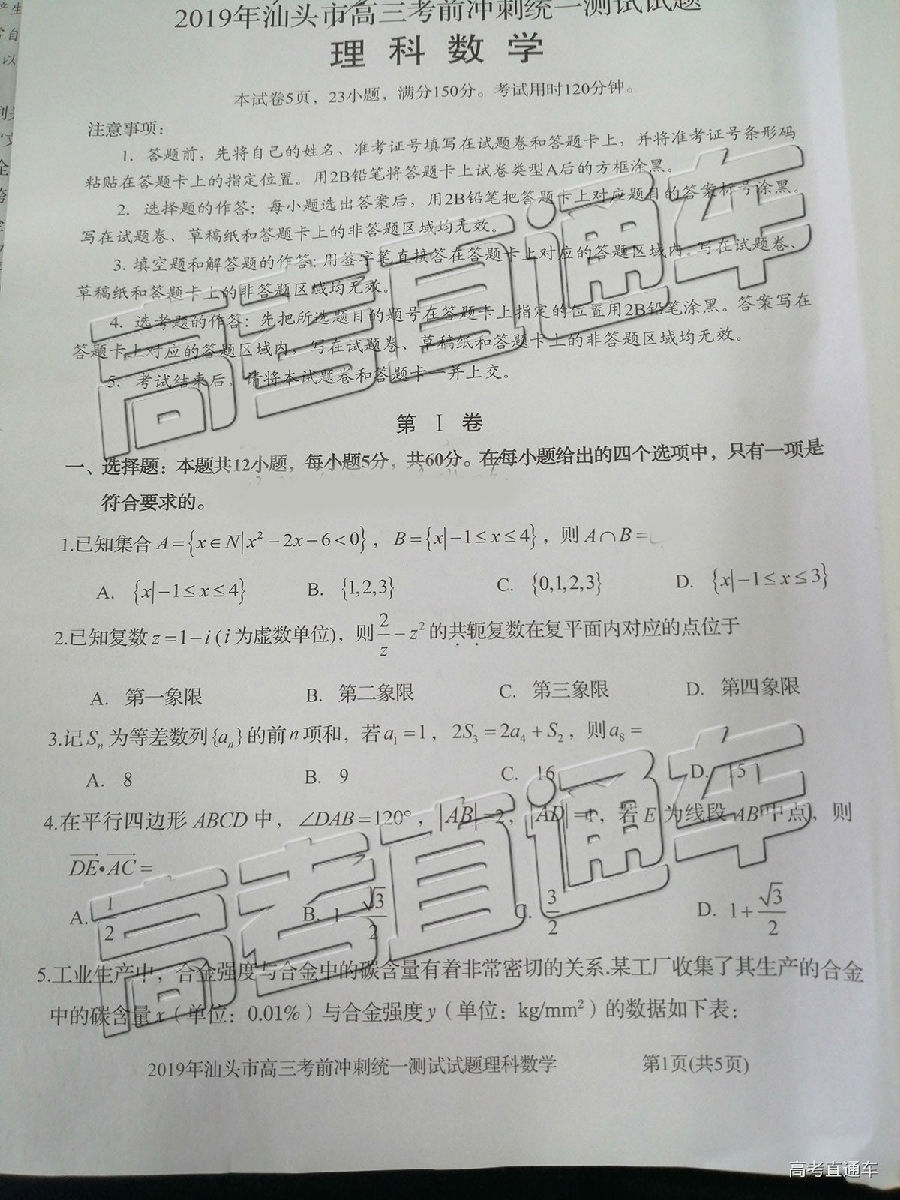 2019年汕头市高三考前冲刺统一测试试题
理科数学
本试卷5页，23小题，满分150分。考试用时120分钟。
注意事项：
1. 答题前，先将自己的姓名、准考证号填写在试题卷和答题卡上，并将准考证号条形码
粘贴在答题卡上的指定位置。用2B铅笔将答题卡上试卷类型A后的方框涂黑。
2. 选择题的作答：每小题选出答案后，用2B铅笔把答题卡上对应题目的答案标号涂黑。
写在试题卷、草稿纸和答题卡上的非答题区域均无效。
3. 填空题和解答题的作答：用签字笔直接答在答题卡上对应的答题区域内。写在试题卷、
草稿纸和答题卡上的非答题区域均无效。
4. 选考题的作答：先把所选题目的题号在答题卡上指定的位置用2B铅笔涂黑。答案写在
答题卡上对应的答题区域内，写在试题卷、草稿纸和答题卡上的非答题区域均无效。
5. 考试结束后，请将本试题卷和答题卡一并上交。
第 I 卷
一、选择题：本题共12小题，每小题5分，共60分。在每小题给出的四个选项中，只有一项是
符合要求的。
1.已知集合 A={x∈N|x²−2x−6<0}，B={x|−1≤x≤4}，则 A∩B=
A. {x|−1≤x≤4} B. {1,2,3} C. {0,1,2,3} D. {x|−1≤x≤3}
2.已知复数 z=1−i (i 为虚数单位)，则 2/z − z² 的共轭复数在复平面内对应的点位于
A. 第一象限 B. 第二象限 C. 第三象限 D. 第四象限
3.记 Sₙ 为等差数列 {aₙ} 的前 n 项和，若 a₁=1，2S₃=2a₄+S₂，则 a₈=
A. 8 B. 9 C. 16 D. 15
4.在平行四边形 ABCD 中，∠DAB=120°，|AB|=2，|AD|=1，若 E 为线段 AB 中点，则
DE•AC=
A. 1/2 B. 1 √3/2 C. 3/2 D. 1+√3/2
5.工业生产中，合金强度与合金中的碳含量有着非常密切的关系.某工厂收集了其生产的合金
中的碳含量 x（单位：0.01%）与合金强度 y（单位：kg/mm²）的数据如下表：
2019年汕头市高三考前冲刺统一测试试题理科数学 第1页(共5页)
高考直通车
高考直通车
高考直通车